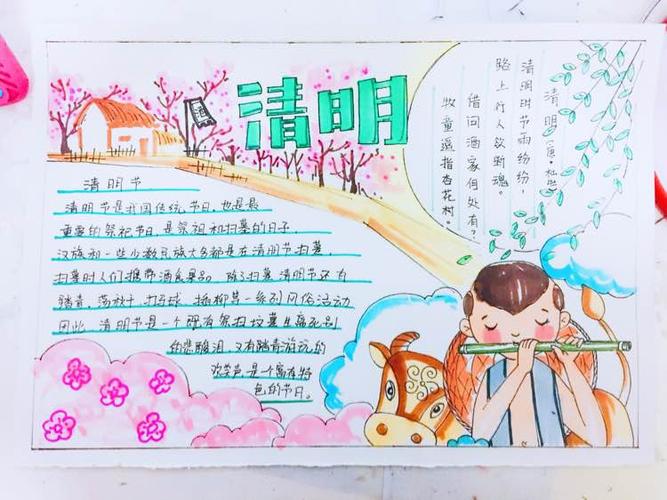 清明
清明 唐·杜牧
清明时节雨纷纷,
路上行人欲断魂。
借问酒家何处有?
牧童遥指杏花村。
清明节
清明节是我国传统节日,也是最
重要的祭祀节日,是祭祖和扫墓的日子。
汉族和一些少数民族大多都是在清明节扫墓。
扫墓时人们携带酒食果品 除了扫墓清明节还有
踏青、荡秋千、打马球、插柳等一系列风俗活动
因此 清明节是一个既有祭扫坟墓生离死别
的悲酸泪 又有踏青游玩的
欢笑声是一个富有特
色的节日。